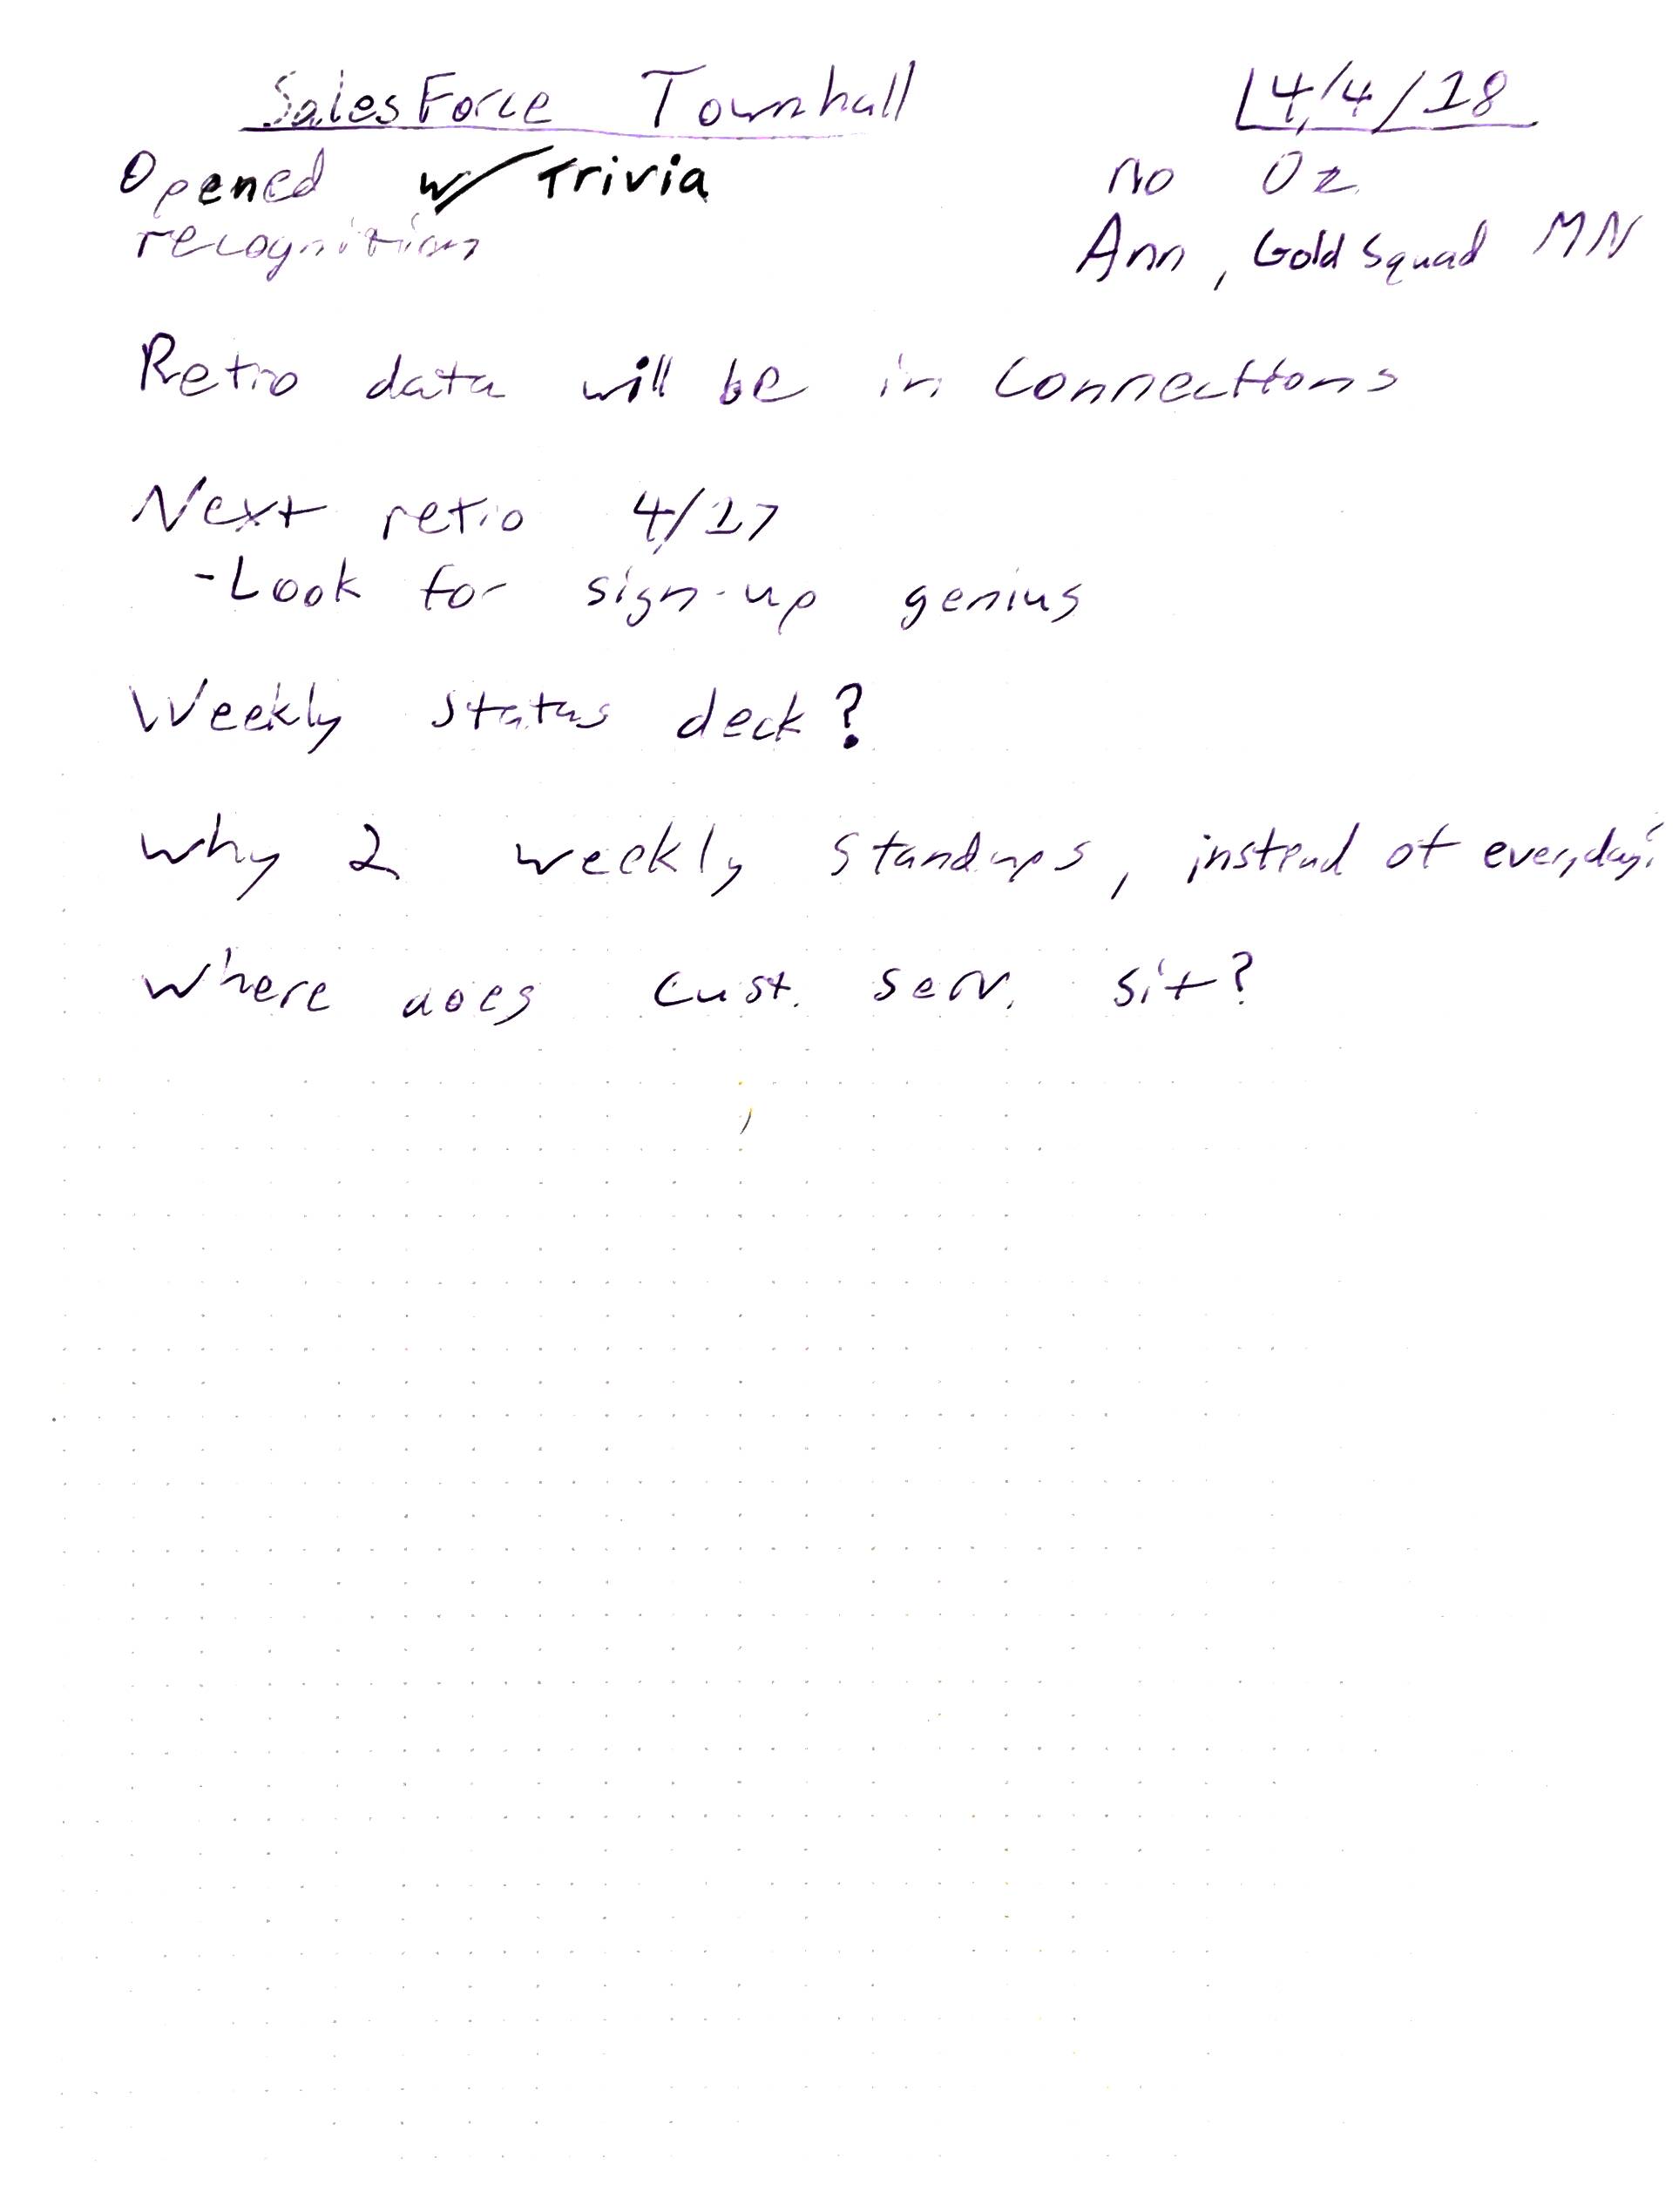 SalesForce Townhall 4/4/18
Opened w/ Trivia no Oz
recognition Ann, Gold Squad MN
Retro data will be in Connections
Next retro 4/17
-Look for sign-up genius
Weekly status deck?
Why 2 weekly standups, instead of everyday?
Where does cust. serv. sit?